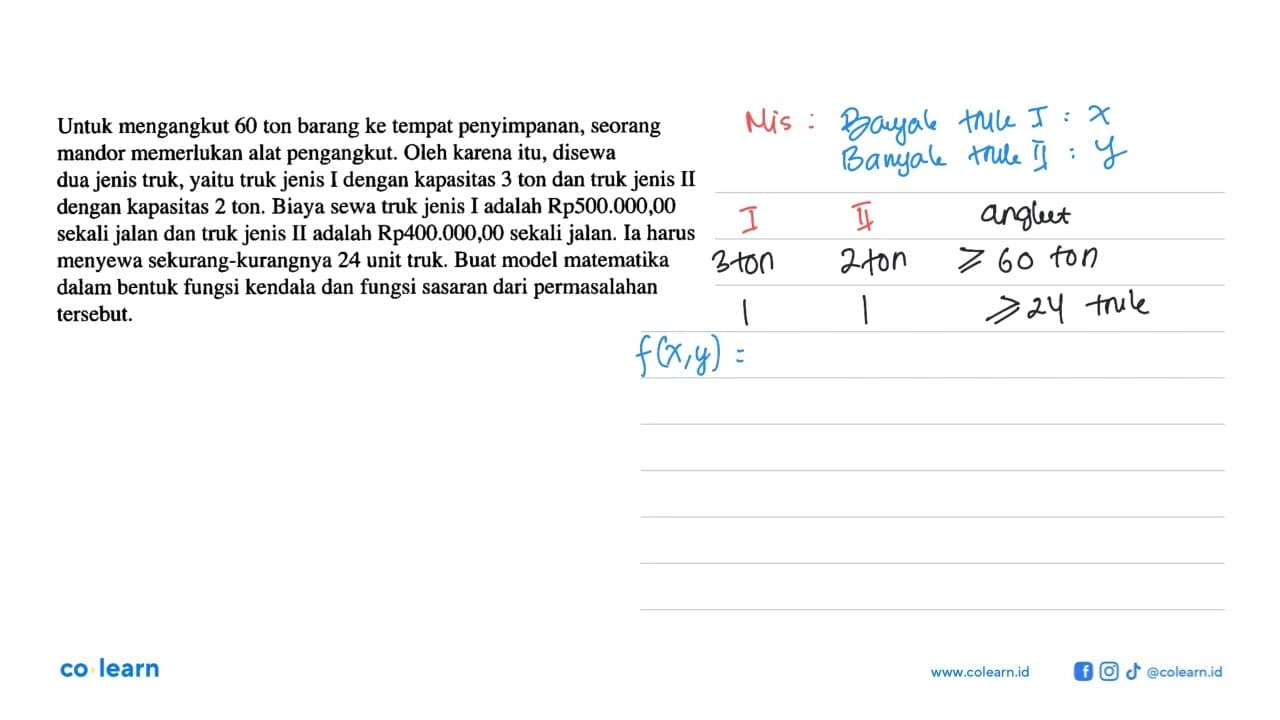 Untuk mengangkut 60 ton barang ke tempat penyimpanan, seorang
mandor memerlukan alat pengangkut. Oleh karena itu, disewa
dua jenis truk, yaitu truk jenis I dengan kapasitas 3 ton dan truk jenis II
dengan kapasitas 2 ton. Biaya sewa truk jenis I adalah Rp500.000,00
sekali jalan dan truk jenis II adalah Rp400.000,00 sekali jalan. Ia harus
menyewa sekurang-kurangnya 24 unit truk. Buat model matematika
dalam bentuk fungsi kendala dan fungsi sasaran dari permasalahan
tersebut.
Mis : Bayak truk I : x
Banyak truk II : y
I II angkut
3 ton 2 ton ≥ 60 ton
1 1 ≥ 24 truk
f(x,y) =
co learn
www.colearn.id
@colearn.id